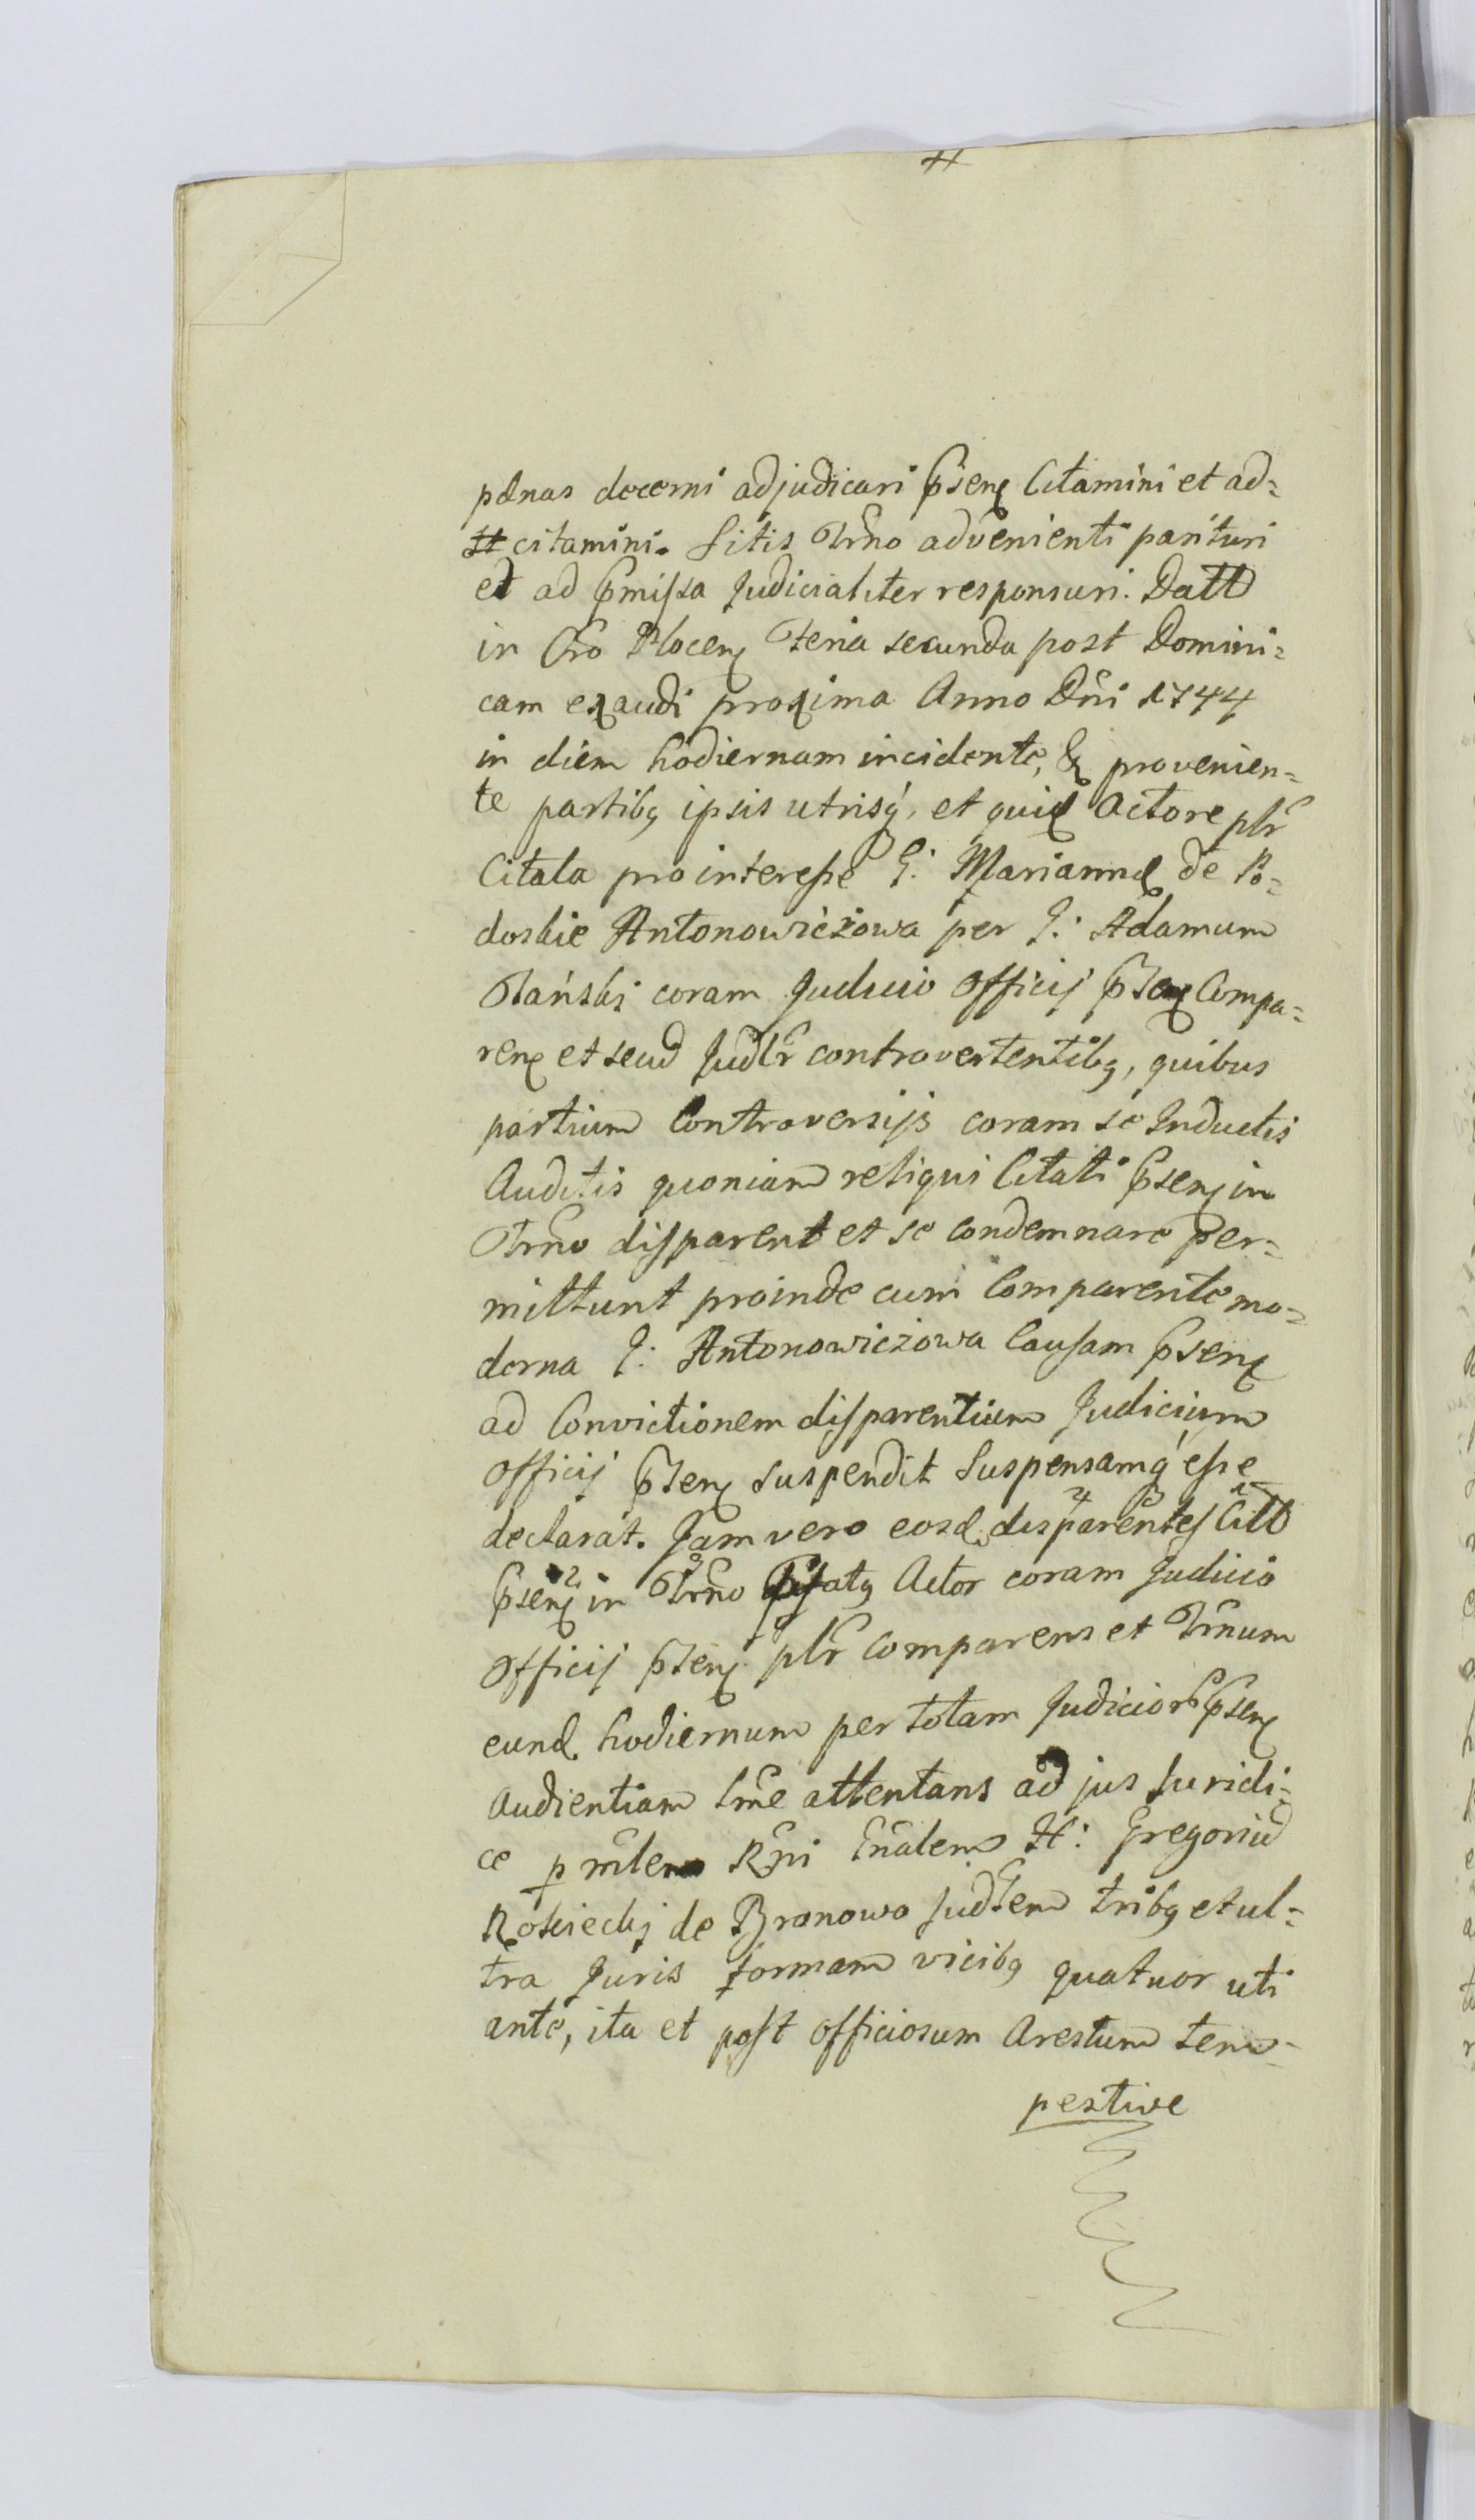 pœnas decerni adjudicari Psenꝭ Citamini et ad=
citamini. Sitis Trno advenienti parituri
et ad Pmissa Judicialiter responsuri. Datt
in Cro Plocenꝭ Feria secunda post Domini=
cam exaudi proxima Anno Dni 1744
in diem hodiernam incidente, & provenien=
te partibꝫ ipsis utrisq, et quid Actore plr
Citata pro interesse G: Mariannæ de Po=
doskie Antonowiczowa per G: Adamum
Tański coram Judicio Officij Psenꝭ Compa=
renꝭ et secud Judlr controvertentibꝫ, quibus
partium Controversijs coram se Inductis
Auditis quoniam reliqui Citati Psenꝭ in
Trno disparent et se condemnare Per=
mittunt proinde cum Comparente mo=
derna G: Antonowiczowa Causam Psenꝭ
ad Convictionem disparentium Judicium
Officij Psenꝭ suspendit Suspensamq esse
declarat. Jam vero eosd. disparentes Citt
Psenꝭ in Trno Actor coram Judicio
Officij Psenꝭ plr comparens et Trnum
eund. hodiernum per totam Judicior Psenꝭ
Audientiam lme attentans ad jus Juridi=
ce p mlem Rgni Gnalem H: Gregoriu
Rościecki de Branowo Judlem tribꝫ et ul=
tra Juris formam vicibꝫ quatuor uti
ante, ita et post Officiosum Arestum tem=
pestive